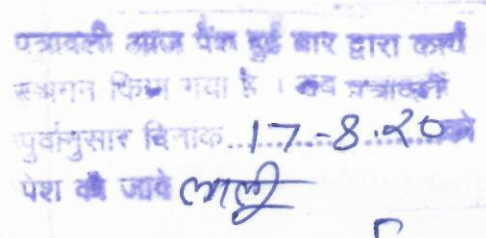 पत्रावली आज पेश हुई बार द्वारा कार्य
स्थगन किया गया है । अब पत्रावली
पुर्वानुसार दिनांक..17-8.20...को
पेश की जावे